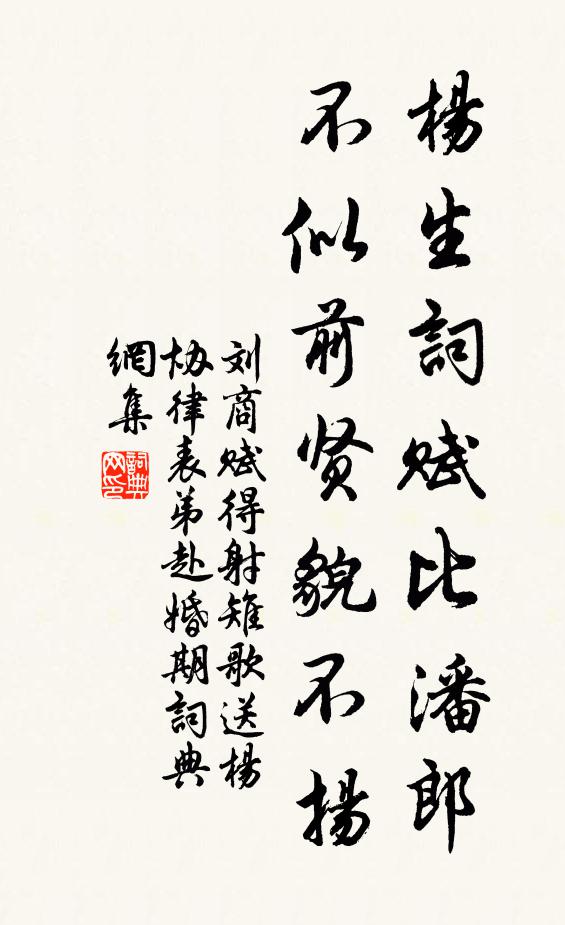 楊生詞赋比潘郎
不似前贤貌不揚
刘商赋得射雉歌送楊
协律表弟赴婚期詞典
網集
詞典
网印